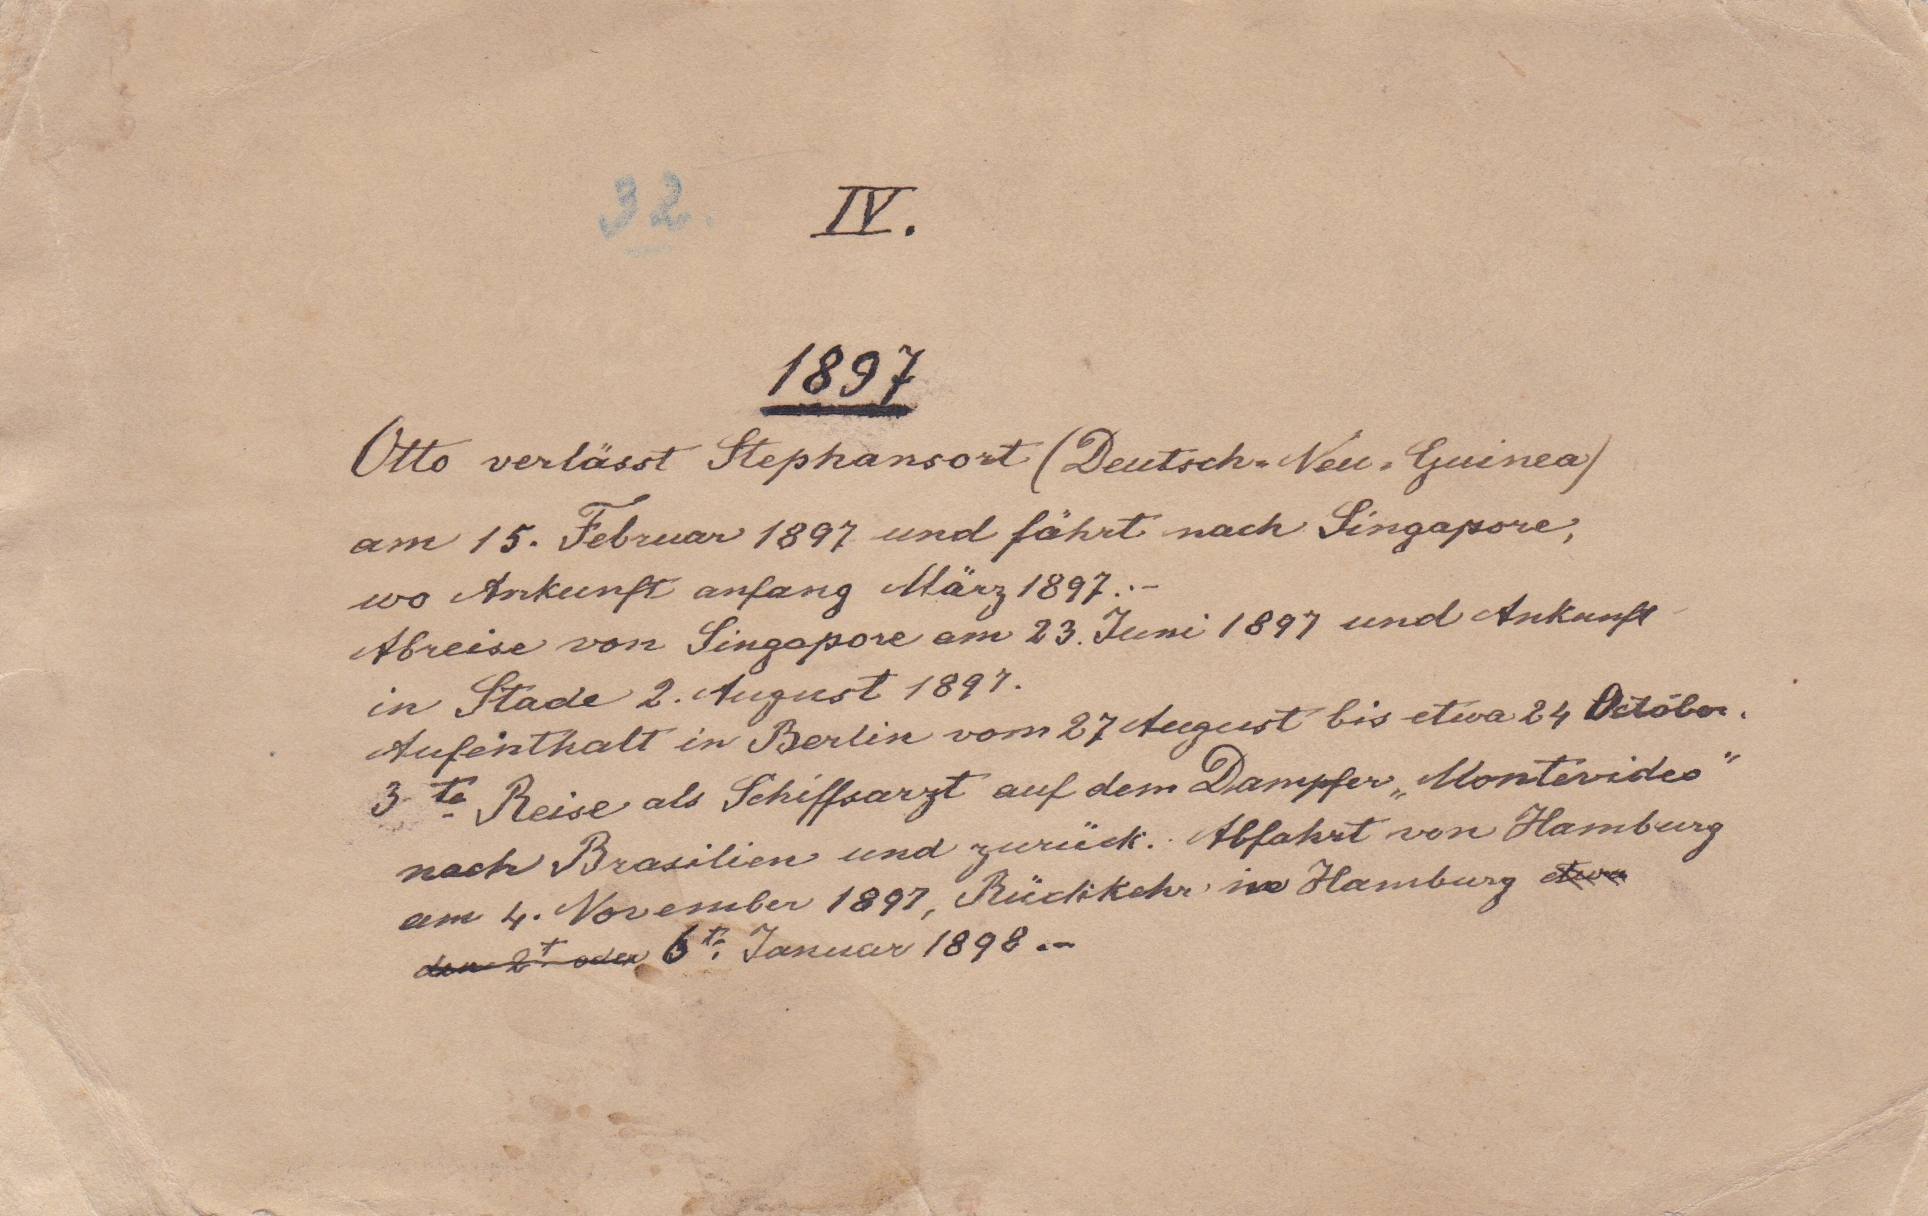 32. IV.
1897
Otto verlässt Stephansort (Deutsch-Neu-Guinea)
am 15. Februar 1897 und fährt nach Singapore,
wo Ankunft anfang März 1897.-
Abreise von Singapore am 23. Juni 1897 und Ankunft
in Stade 2. August 1897.
Aufenthalt in Berlin vom 27 August bis etwa 24 October.
3te Reise als Schiffsarzt auf dem Dampfer „Montevideo"
nach Brasilien und zurück. Abfahrt von Hamburg
am 4. November 1897, Rückkehr in Hamburg etwa
den 2t oder 6t. Januar 1898.-